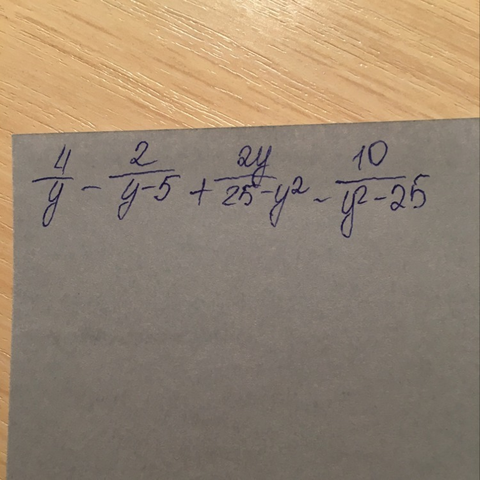 4/y - 2/(y-5) + 2y/(25-y²) - 10/(y²-25)